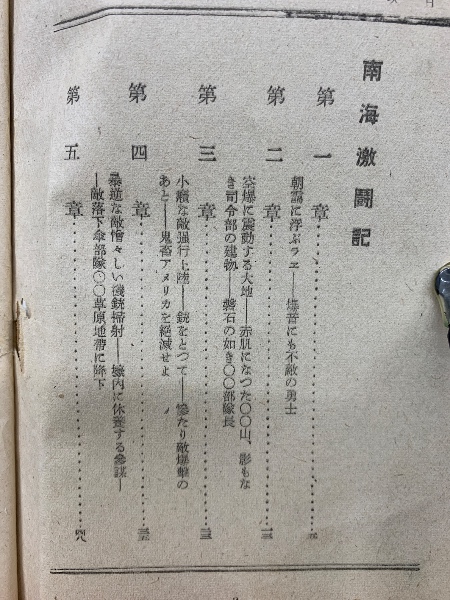 南海激闘記
第一章……………
朝靄に浮ぶラエ――爆音にも不敵の勇士
第二章……………
空爆に震動する大地――赤肌になつた〇〇山、影もな
き司令部の建物――磐石の如き〇〇部隊長
第三章……………
小癪な敵强行上陸――銃をとつて――慘たり敵爆撃の
あと――鬼畜アメリカを絶滅せよ
第四章……………
暴逆な敵憎々しい機銃掃射――壕内に休養する參謀―
―敵落下傘部隊〇〇草原地帶に降下
第五章……………